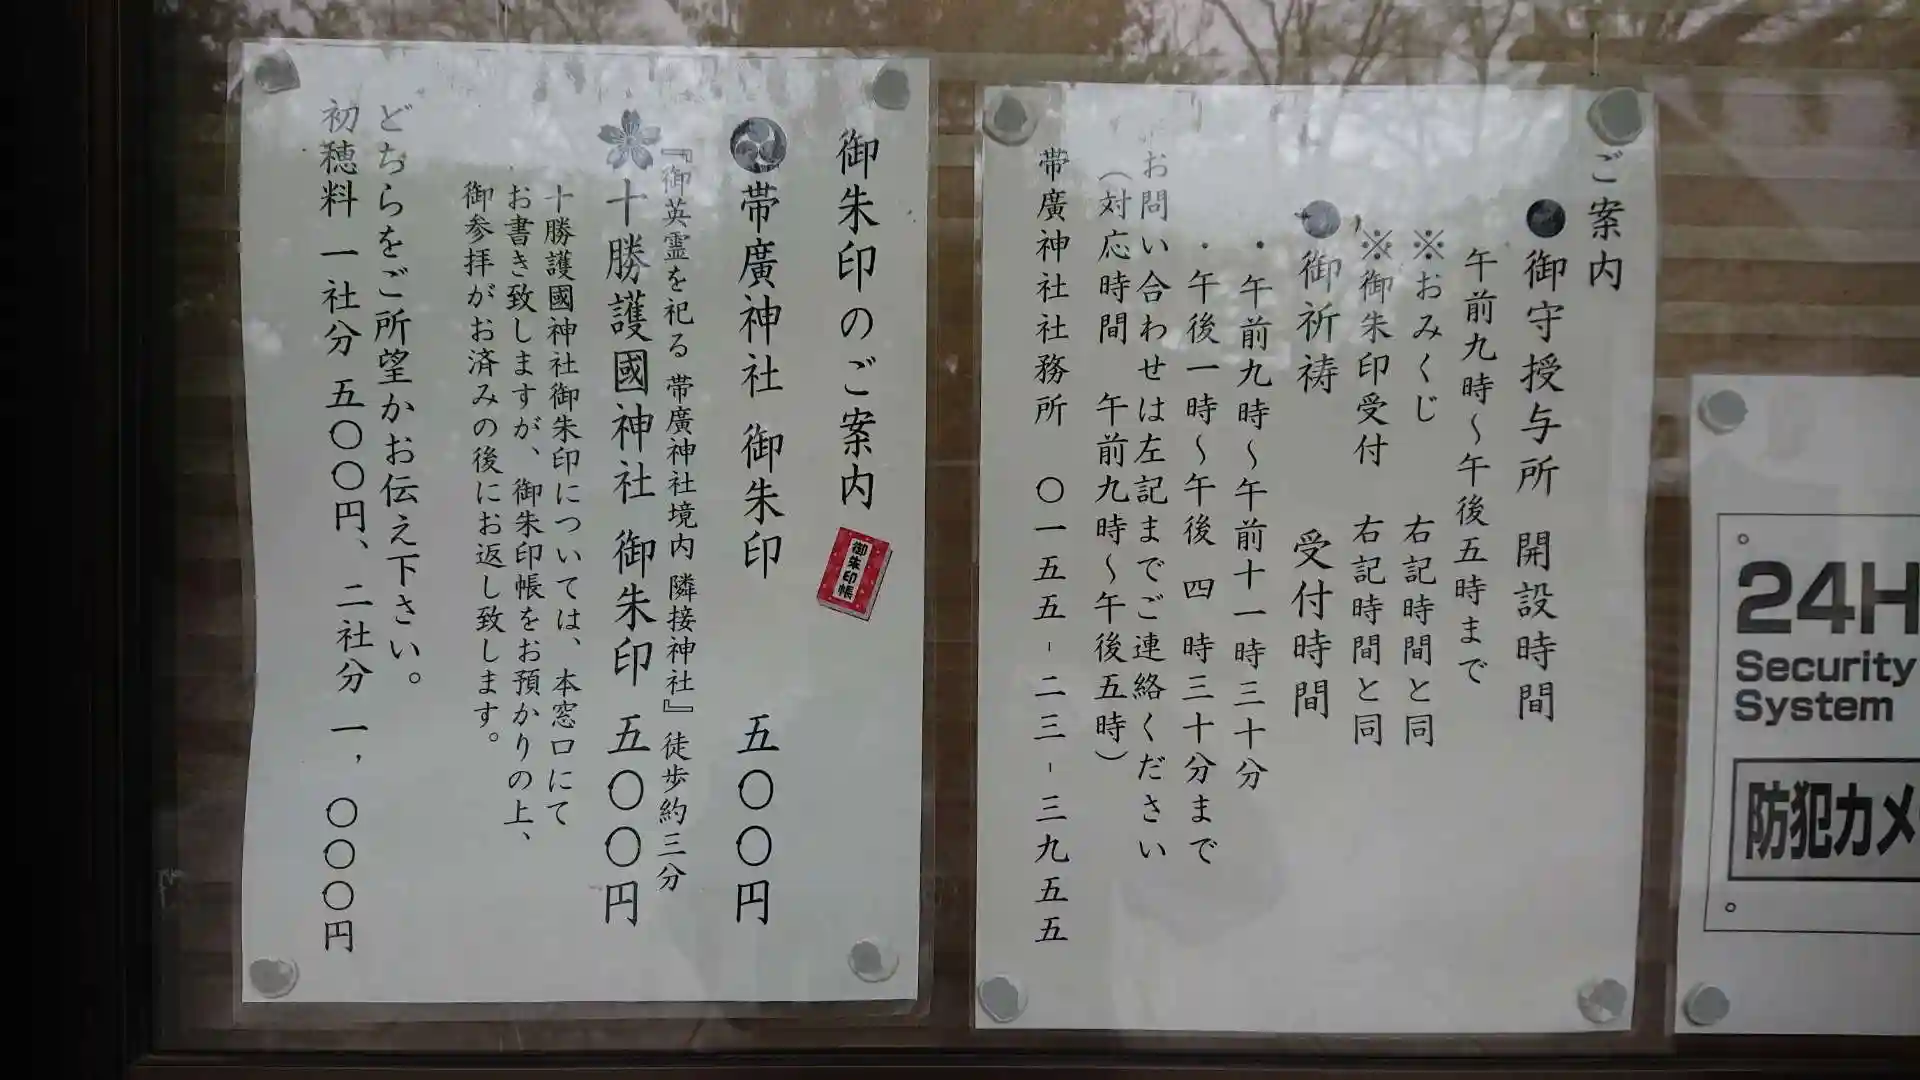 ご案内
●御守授与所 開設時間
午前九時～午後五時まで
※おみくじ 右記時間と同
※御朱印受付 右記時間と同
●御祈祷 受付時間
・午前九時～午前十一時三十分
・午後一時～午後 四 時三十分まで
お問い合わせは左記までご連絡ください
（対応時間 午前九時～午後五時）
帯廣神社社務所 〇一五五-二三-三九五五
御朱印のご案内
御朱印帳
帯廣神社 御朱印 五〇〇円
『御英霊を祀る 帯廣神社境内 隣接神社』徒歩約三分
十勝護國神社 御朱印 五〇〇円
十勝護國神社御朱印については、本窓口にて
お書き致しますが、御朱印帳をお預かりの上、
御参拝がお済みの後にお返し致します。
どちらをご所望かお伝え下さい。
初穂料 一社分 五〇〇円、二社分 一，〇〇〇円
24H
Security
System
防犯カメ